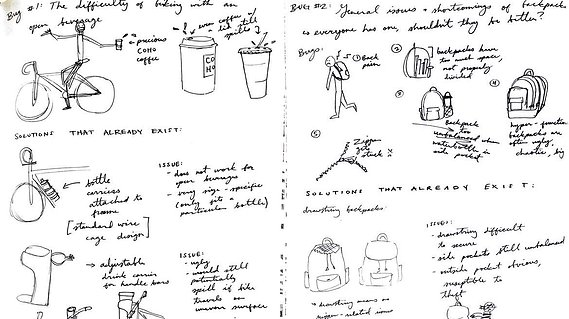 Bug #1: The difficulty of biking with an
open beverage
precious
COHO
coffee
even coffee w/
a lid still
spills
CO
HO
SOLUTIONS THAT ALREADY EXIST:
bottle
carriers
attached to
frame
[standard wire
cage design]
ISSUE:
- does not work for
open beverages
- very size-specific
(only fits a
particular bottle)
adjustable
drink carrier
for handle bars
ISSUE:
- ugly
- would still
potentially
spill if bike
travels on
uneven surface
BUG #2: General issues + shortcomings of backpacks
everyone has one, shouldn't they be better?
Bugs:
① Back
pain
② backpacks have
too much space,
not properly
divided
③
Backpack
too
unbalanced when
waterbottle in
side pocket
④
hyper-function
backpacks are
often ugly,
chaotic, big
⑤
Zipper
gets
stuck
SOLUTIONS THAT ALREADY EXIST:
drawstring backpacks
ISSUE:
- drawstring difficult
to secure
- side pockets still unbalanced
- outside pocket obvious,
susceptible to
theft
drawstring means no
zipper-related issues